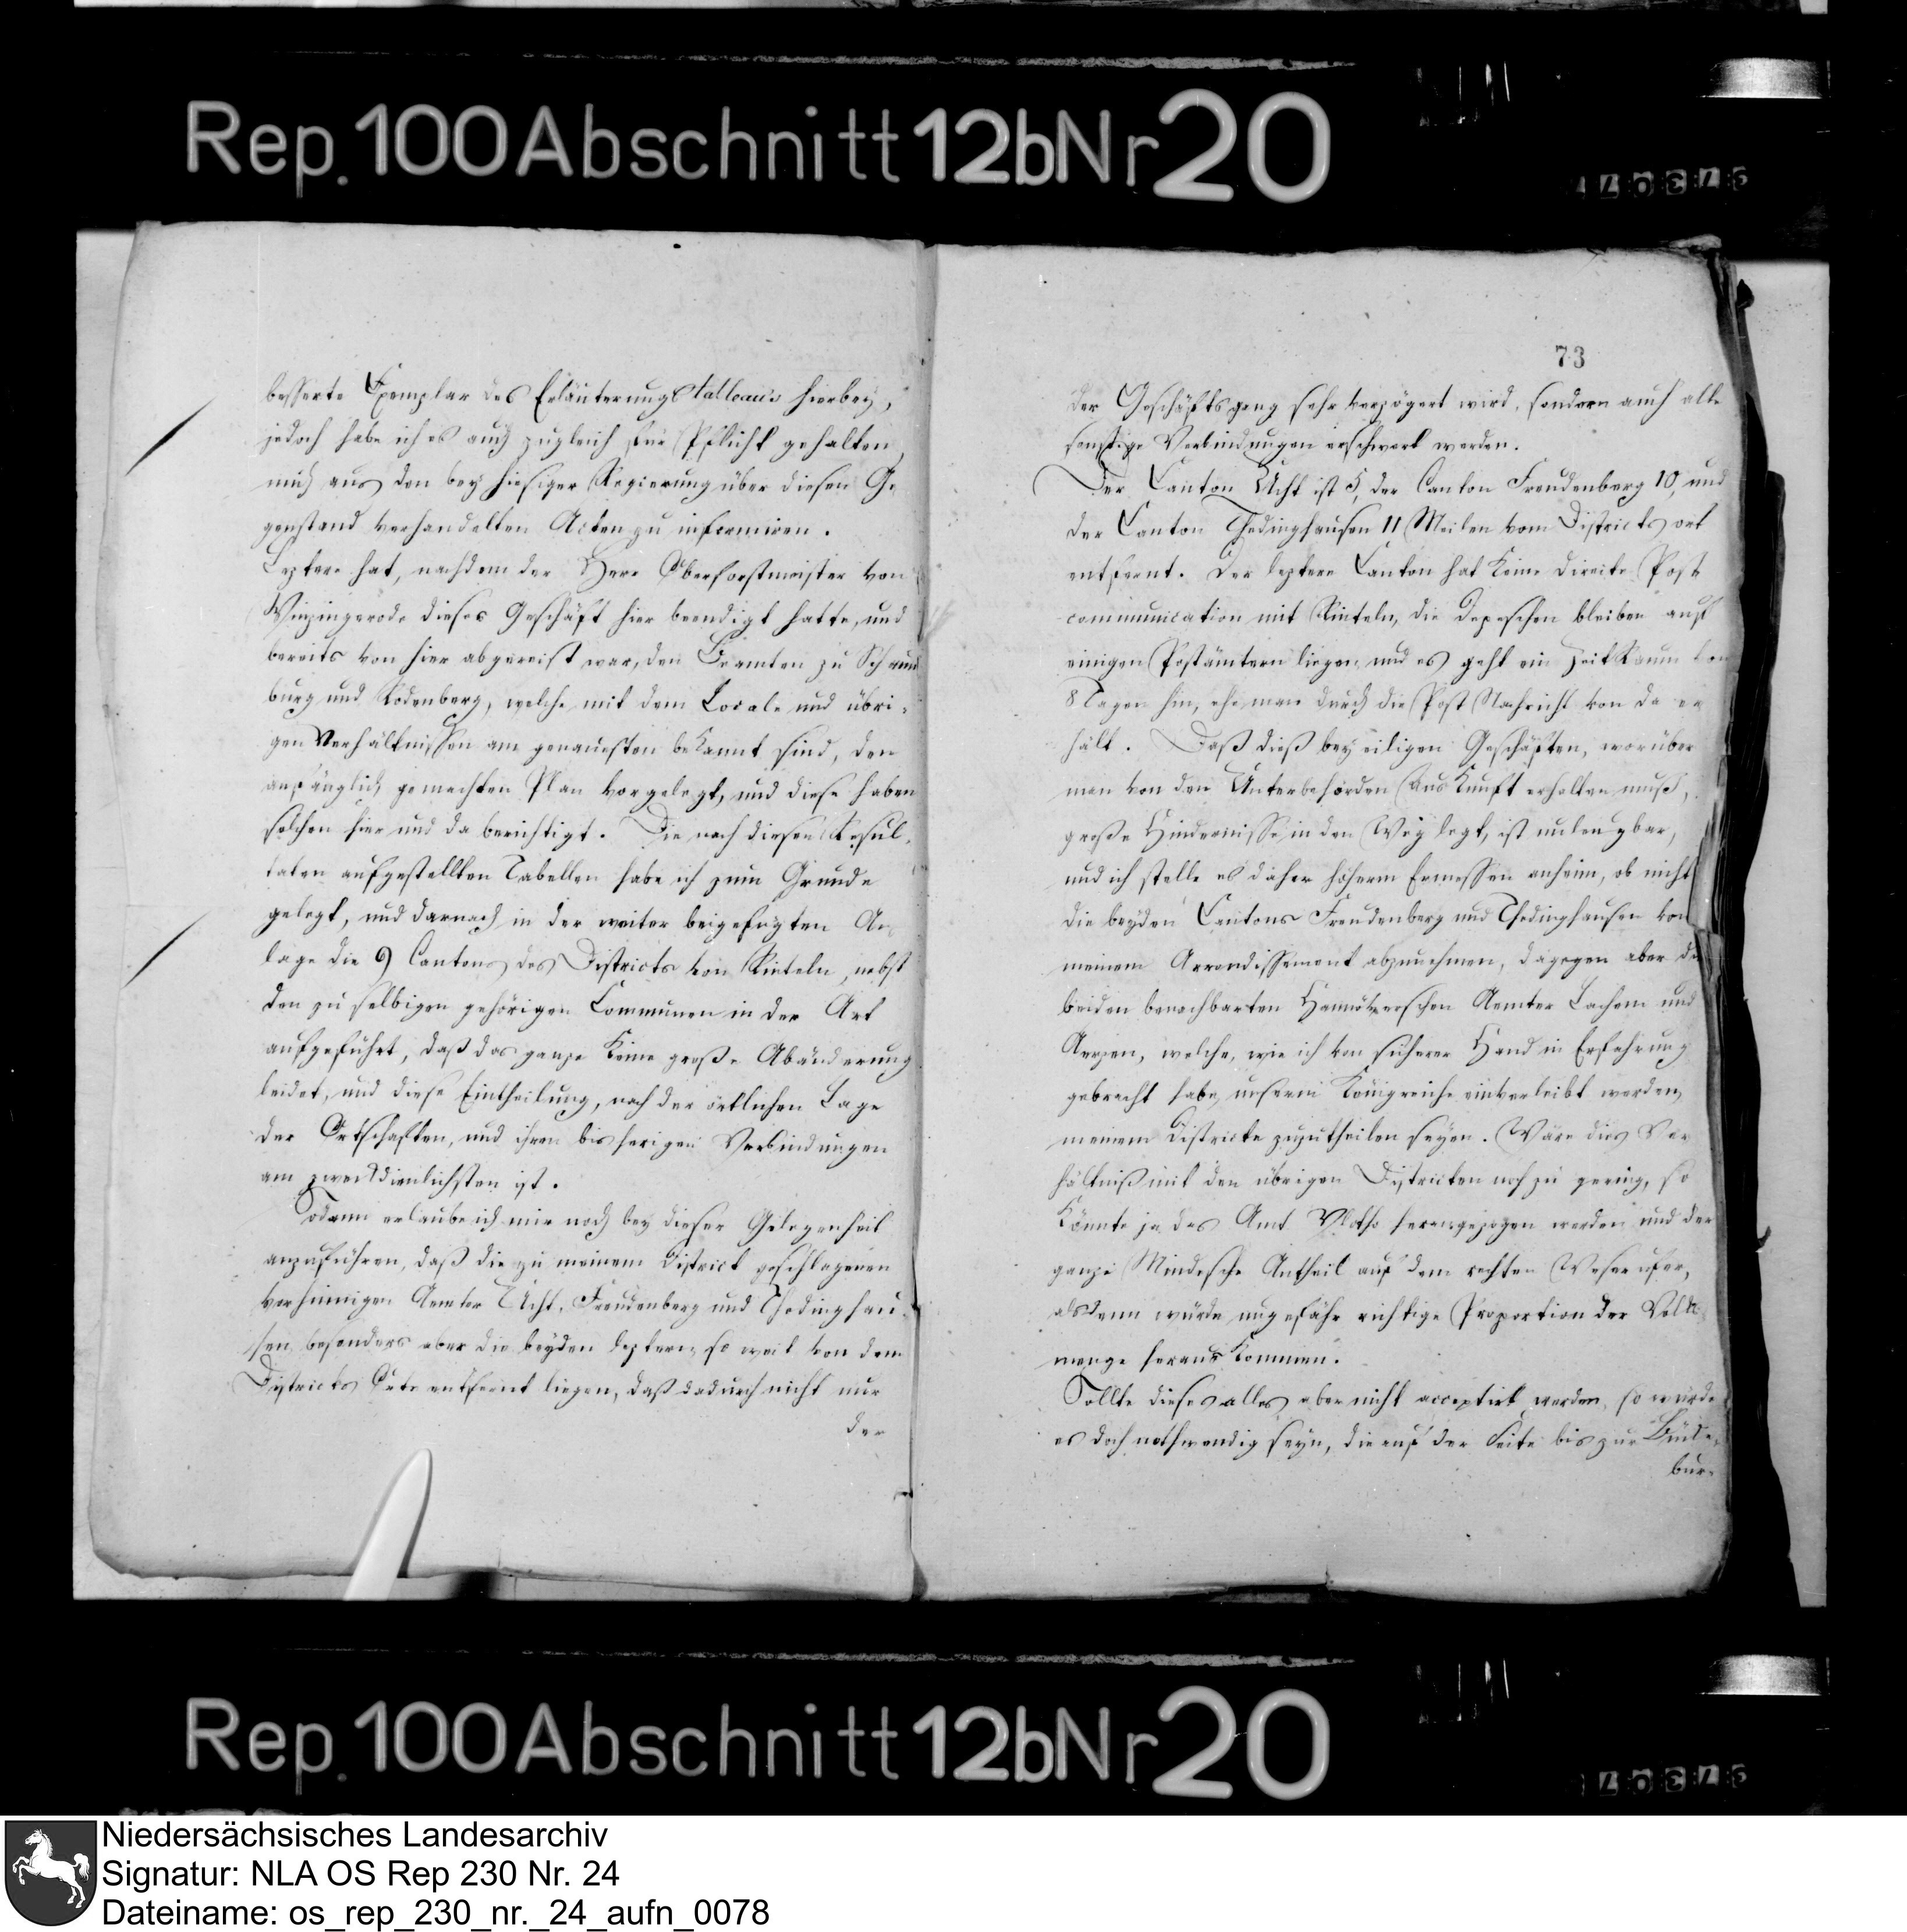 Rep. 100 Abschnitt 12b Nr 20
besserte Exemplar des Erläuterungs Talleau's hierbey,
jedoch habe ich es auch zugleich für Pflicht gehalten,
mich aus den bey hiesiger Regierung über diesen Ge
genstand verhandelten Acten zu informiren.
Leztere hat, nachdem der Herr Oberforstmeister von
Winzingerode dieses Geschäft hier beendigt hatte, und
bereits von hier abgereist war, den Beamten zu Schaum
burg und Rodenberg, welche mit dem Locale und übri-
gen Verhältnissen am genauesten bekannt sind, den
anfänglich gemachten Plan vorgelegt, und diese haben
solchen hier und da berichtigt. Die nach diesen Resul-
taten aufgestellten Tabellen habe ich zum Grunde
gelegt, und darnach in der weiter beigefügten An
lage die 9 Cantons des Districts von Rinteln, nebst
den zu selbigen gehörigen Communen in der Art
aufgeführt, daß das ganze keine große Abänderung
leidet, und diese Eintheilung, nach der örtlichen Lage
der Ortschaften, und ihren bisherigen Verbindungen
am zweckdienlichsten ist.
Sodann erlaube ich mir noch bey dieser Gelegenheit
anzuführen, daß die zu meinem District geschlagenen
vorhinnigen Aemter Ucht, Freudenberg und Thedinghau-
sen, besonders aber die beyden leztern, so weit von dem
Districts Orte entfernt liegen, daß dadurch nicht nur
der
73
der Geschäftsgang sehr verzögert wird, sondern auch alle
sonstige Verbindungen erschwert werden.
Der Canton Ucht ist 5, der Canton Freudenberg 10, und
der Canton Thedinghausen 11 Meilen vom Districts ort
entfernt. Der leztere Canton hat keine directe Post
communication mit Rinteln, die Depeschen bleiben auf
einigen Postämtern liegen, und es geht ein Zeit Raum von
8 Tagen hin, ehe man durch die Post Nachricht von da er
hält. Daß dieß bey eiligen Geschäften, worüber
man von den Unterbehörden Auskunft erhalten muß,
große Hindernisse in den Weg legt, ist unleugbar,
und ich stelle es daher höherm Ermessen anheim, ob nicht
die beyden Cantons Freudenberg und Thedinghausen von
meinem Arrondissement abzunehmen, dagegen aber die
beiden benachbarten Hannöverschen Aemter Lachem und
Aerzen, welche, wie ich von sicherer Hand in Erfahrung
gebracht habe, unserm Königreiche einverleibt werden,
meinem Districte zuzutheilen seyen. Wäre dies Ver
hältniß mit den übrigen Districten noch zu gering, so
könnte ja das Amt Vlotho herangezogen werden und der
ganze Mindesche Antheil auf dem rechten Weserufer,
alsdann würde ungefähr richtige Proportion der Volks
menge heraus kommen.
Sollte dieses alles aber nicht acceptirt werden, so würde
es doch nothwendig seyn, die auf der Seite bis zur Bücke-
bur-
Rep. 100 Abschnitt 12b Nr 20
Niedersächsisches Landesarchiv
Signatur: NLA OS Rep 230 Nr. 24
Dateiname: os_rep_230_nr._24_aufn_0078